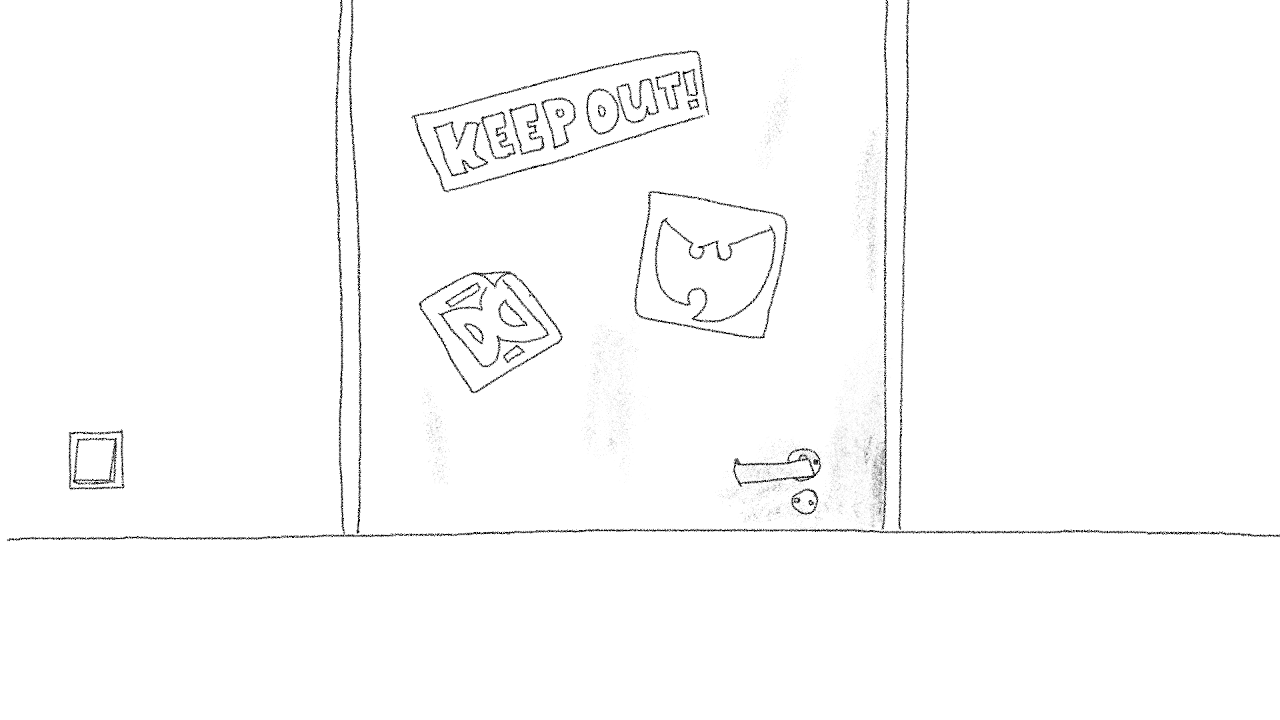 KEEP OUT!